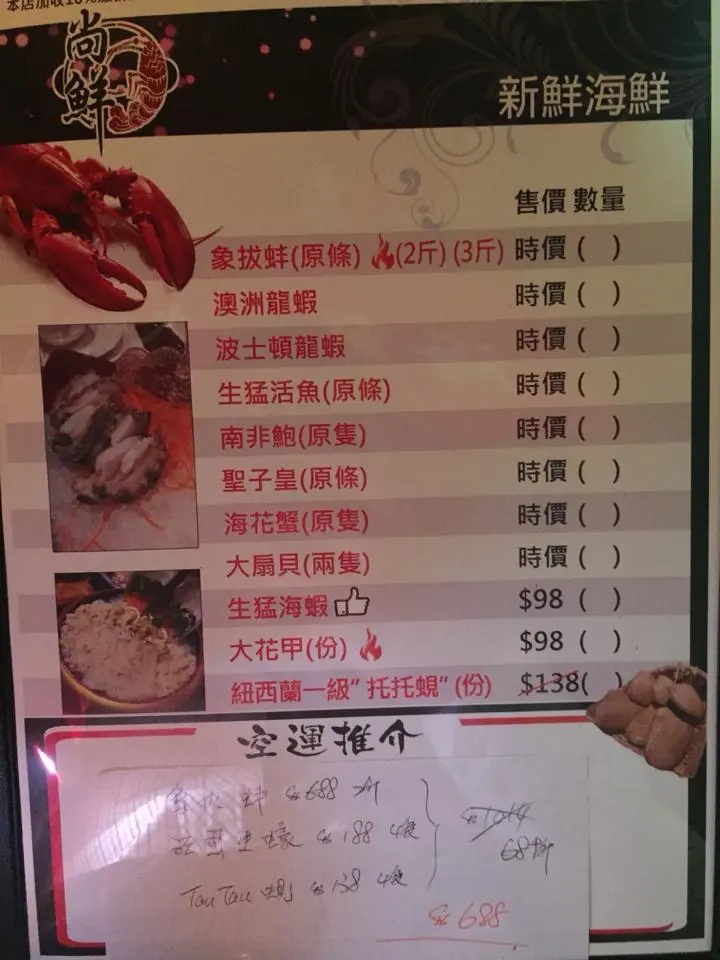 本店加收10%
尚鮮
新鮮海鮮
售價 數量
象拔蚌(原條) (2斤) (3斤) 時價 ( )
澳洲龍蝦 時價 ( )
波士頓龍蝦 時價 ( )
生猛活魚(原條) 時價 ( )
南非鮑(原隻) 時價 ( )
聖子皇(原條) 時價 ( )
海花蟹(原隻) 時價 ( )
大扇貝(兩隻) 時價 ( )
生猛海蝦 $98 ( )
大花甲(份) $98 ( )
紐西蘭一級"托托蜆"(份) $138( )
空運推介
象拔蚌 $688
生蠔 $188
Tau Tau 蜆 $138
$1014
$688